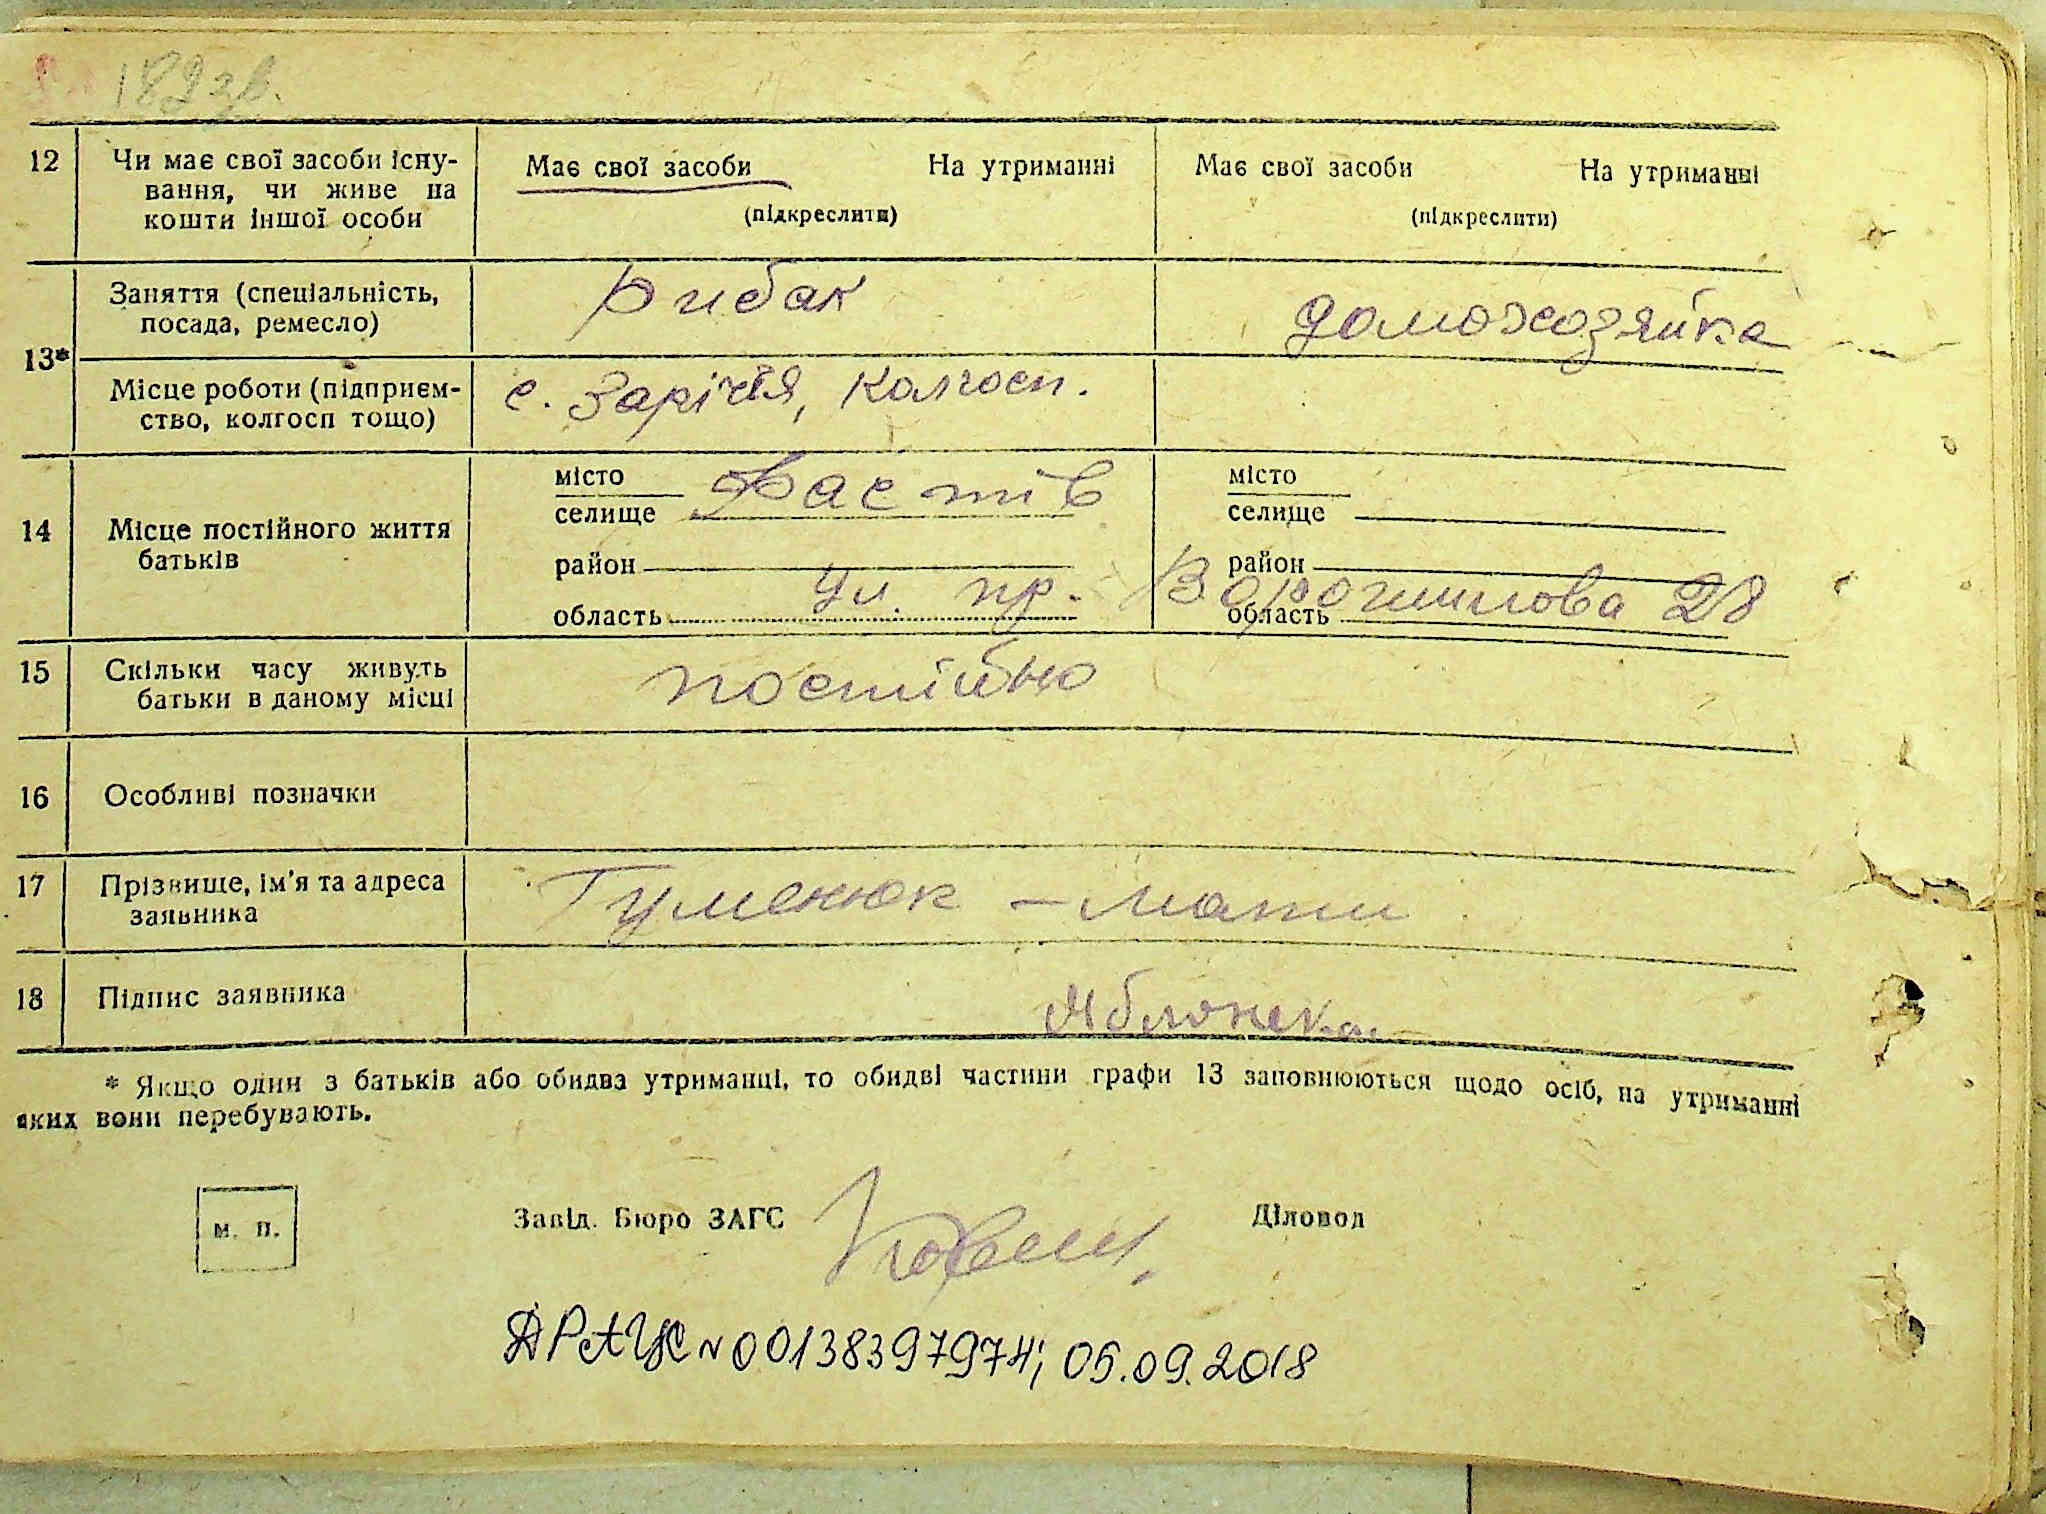 182 зв.
12 Чи має свої засоби існу-
вання, чи живе на
кошти іншої особи
Має свої засоби На утриманні
(підкреслити)
Має свої засоби На утриманні
(підкреслити)
13*
Заняття (спеціальність,
посада, ремесло)
Рибак
домохозяйка
Місце роботи (підприєм-
ство, колгосп тощо)
с. Заріччя, колгосп.
14 Місце постійного життя
батьків
місто
селище
Фастів
район
область
ул. пр. Ворошилова 28
місто
селище
район
область
15 Скільки часу живуть
батьки в даному місці
постійно
16 Особливі позначки
17 Прізвище, ім'я та адреса
заявника
Гуменюк – мати
18 Підпис заявника
* Якщо один з батьків або обидва утриманці, то обидві частини графи 13 заповнюються щодо осіб, на утриманні
яких вони перебувають.
м. п.
Завід. Бюро ЗАГС
Діловод
ДРАЦС № 00138397974; 05.09.2018